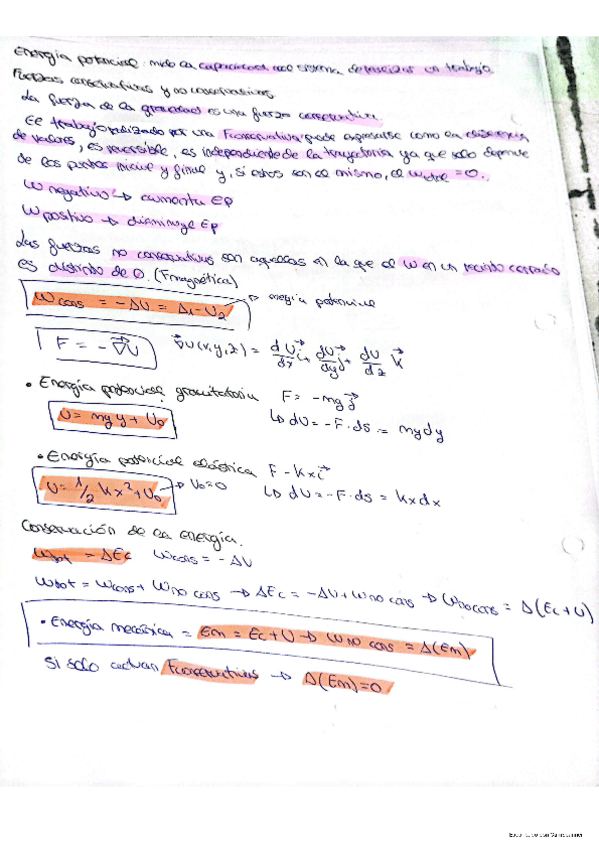 Energía potencial: mide la capacidad del sistema de realizar un trabajo
Fuerzas conservativas y no conservativas.
La fuerza de la gravedad es una fuerza conservativa.
El trabajo realizado por una Fconservativa puede expresarse como la diferencia
de valores, es reversible, es independiente de la trayectoria ya que solo depende
de los puntos inicial y final y, si estos son el mismo, el Wtotal = 0.
W negativo → aumenta Ep
W positivo → disminuye Ep
Las fuerzas no conservativas son aquellas en la que el W en un recinto cerrado
es distinto de 0. (Fmagnética)
Wcons = -ΔU = Δ1 - U2 → energía potencial
F = -∇U ∇U(x,y,z) = dU/dx i + dU/dy j + dU/dz k
• Energía potencial gravitatoria F = -mg j
U = mgy + U0 ↳ dU = -F·ds = mgdy
• Energía potencial elástica F - kx i
U = 1/2 kx² + U0 → U0=0 ↳ dU = -F·ds = kxdx
Conservación de la energía.
Wtot = ΔEc Wcons = -ΔU
Wtot = Wcons + Wno cons → ΔEc = -ΔU + Wno cons → Wno cons = Δ(Ec+U)
• Energía mecánica = Em = Ec + U → W no cons = Δ(Em)
Si solo actúan Fconservativas → Δ(Em)=0